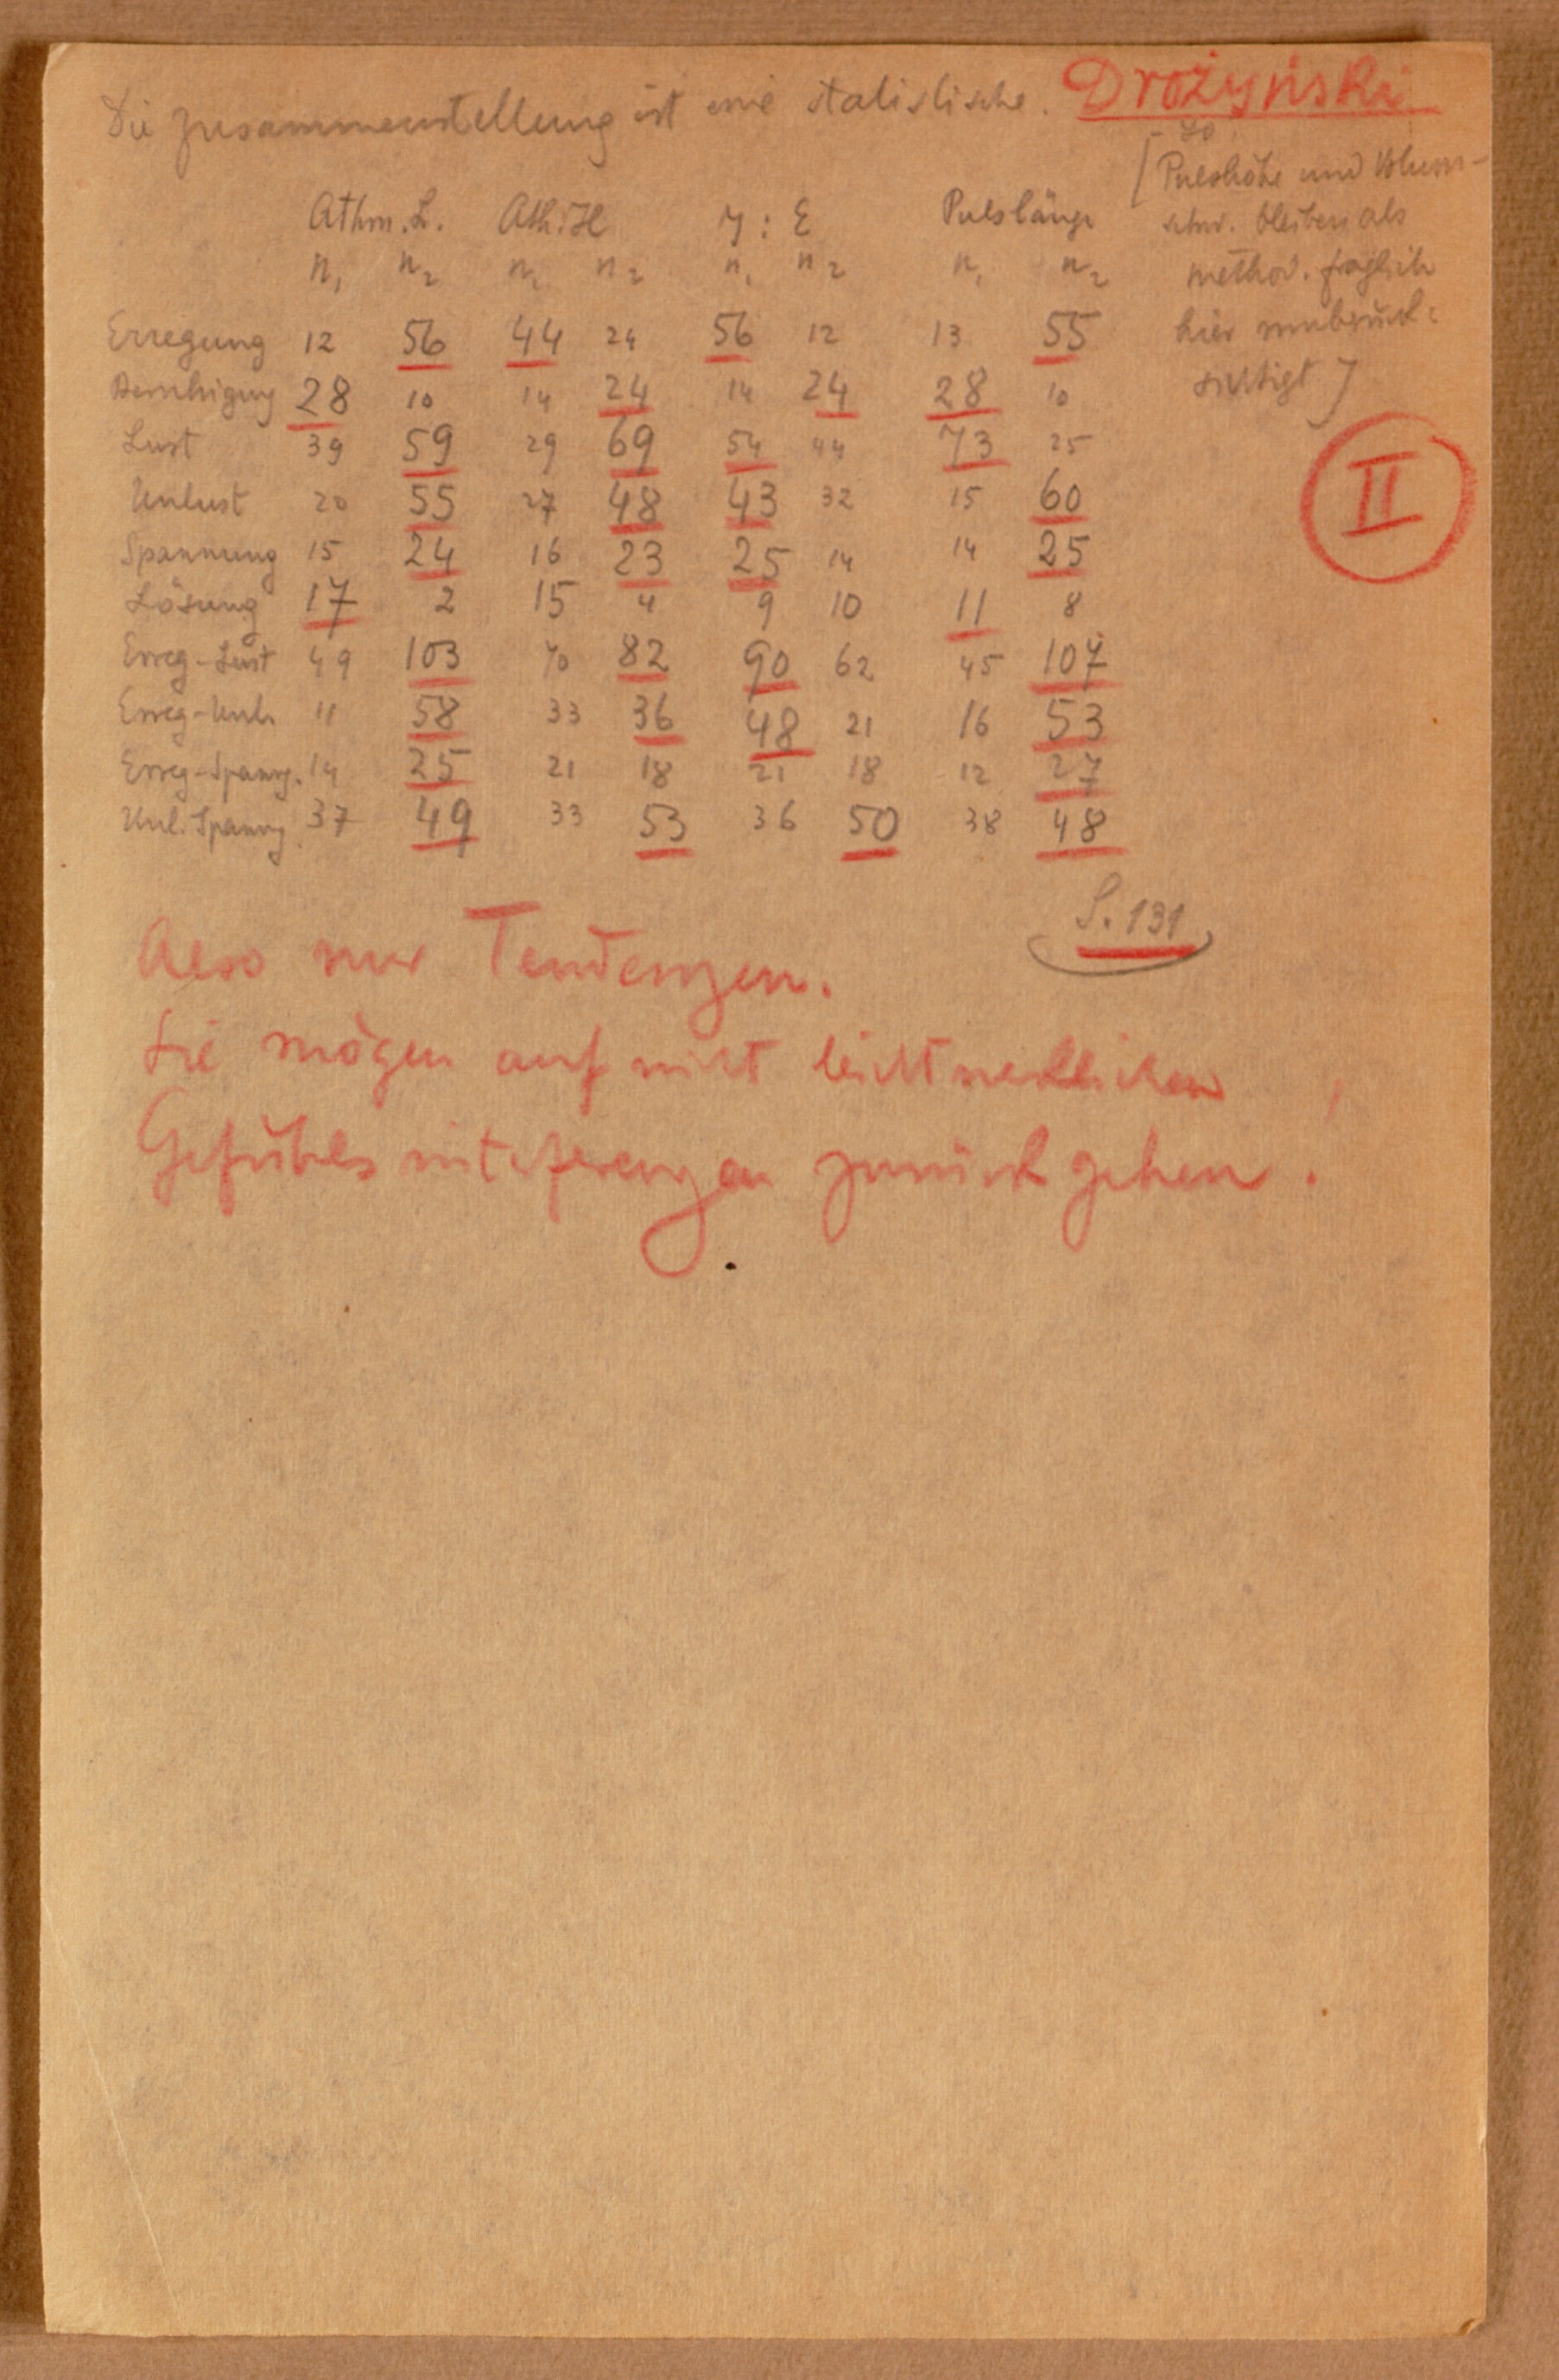 Die Zusammenstellung ist eine statistische. Drożyński
Athm. L. Ath: H J : E Pulslänge
n₁ n₂ n₁ n₂ n₁ n₂ n₁ n₂
Erregung 12 56 44 24 56 12 13 55
Beruhigung 28 10 14 24 14 24 28 10
Lust 39 59 29 69 54 44 73 25
Unlust 20 55 27 48 43 32 15 60
Spannung 15 24 16 23 25 14 14 25
Lösung 17 2 15 4 9 10 11 8
Erreg-Lust 49 103 70 82 90 62 45 107
Erreg-Unl. 11 58 33 36 48 21 16 53
Erreg-Spanng. 14 25 21 18 21 18 12 27
Unl. Spanng 37 49 33 53 36 50 38 48
[Pulshöhe und Volum-
schw. bleiben als
method. fraglich
hier unberück-
sichtigt]
II
S. 131
Also nur Tendenzen.
Die mögen auf nicht leicht merklichen
Gefühls zurückgehen.